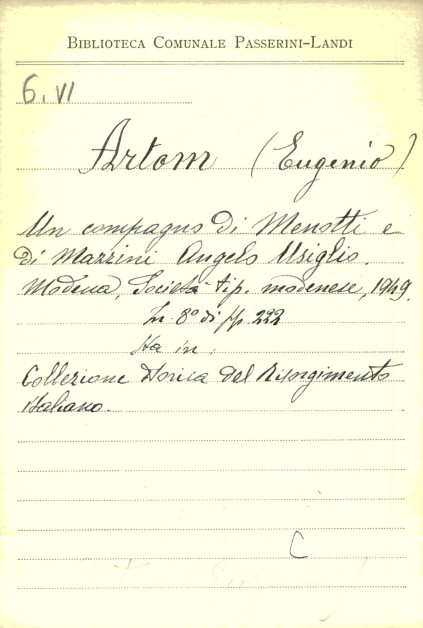 BIBLIOTECA COMUNALE PASSERINI-LANDI
6. VI
Artom (Eugenio)
Un compagno di Menotti e
di Mazzini Angelo Usiglio.
Modena, Società tip. modenese, 1949.
In 8° di pp. 222
Sta in:
Collezione storica del Risorgimento
italiano.
C